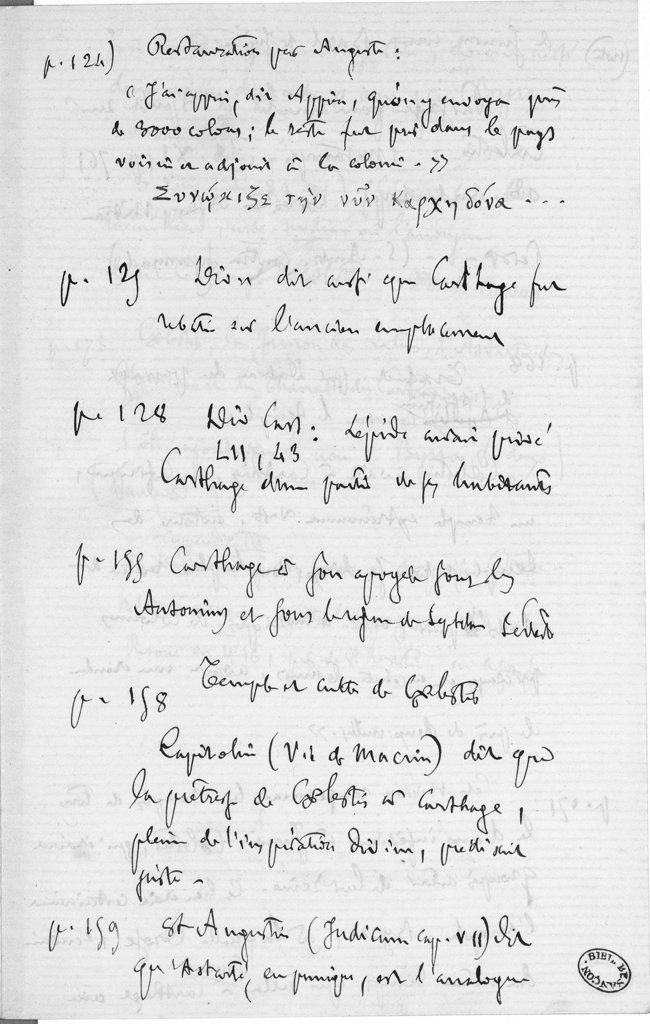 p. 124) Restauration par Auguste :
« J'ai appris, dit Appien, qu'on y envoya près
de 3000 colons ; le reste fut pris dans le pays
voisin et adjoint à la colonie. »
Συνῴκιζε τὴν νῦν Καρχηδόνα ...
p. 125 Dion dit aussi que Carthage fut
rebâtie sur l'ancien emplacement
p. 128 Dio Cass : Lépide avait privé
LII, 43
Carthage d'une partie de ses habitants
p. 155 Carthage à son apogée sous les
Antonins et sous le règne de Septime Sévère
p. 158 Temple et culte de Cœlestis
Capitolin (Vit de Macrin) dit que
la prêtresse de Cœlestis à Carthage,
pleine de l'inspiration divine, prédisait
juste -
p. 159 St Augustin (Judicum cap. VII) dit
qu'Astarté, en punique, est l'analogue
BIBL. BESANÇON